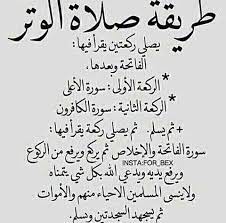 طريقة صلاة الوتر
يصلي ركعتين يقرأ فيها:
الفاتحة وبعدها.
*الركعة الأولى: سورة الأعلى
*الركعة الثانية: سورة الكافرون
+ ثم يسلم. ثم يصلي ركعة يقرأ فيها:
سورة الفاتحة والإخلاص ثم يركع ويرفع من الركوع
INSTA:FOR_BEX
ويرفع يديه ويدعى الله بكل شي يتمناه
ولا ينسى المسلمين الاحياء منهم والأموات
ثم يسجد السجدتين ويسلم.